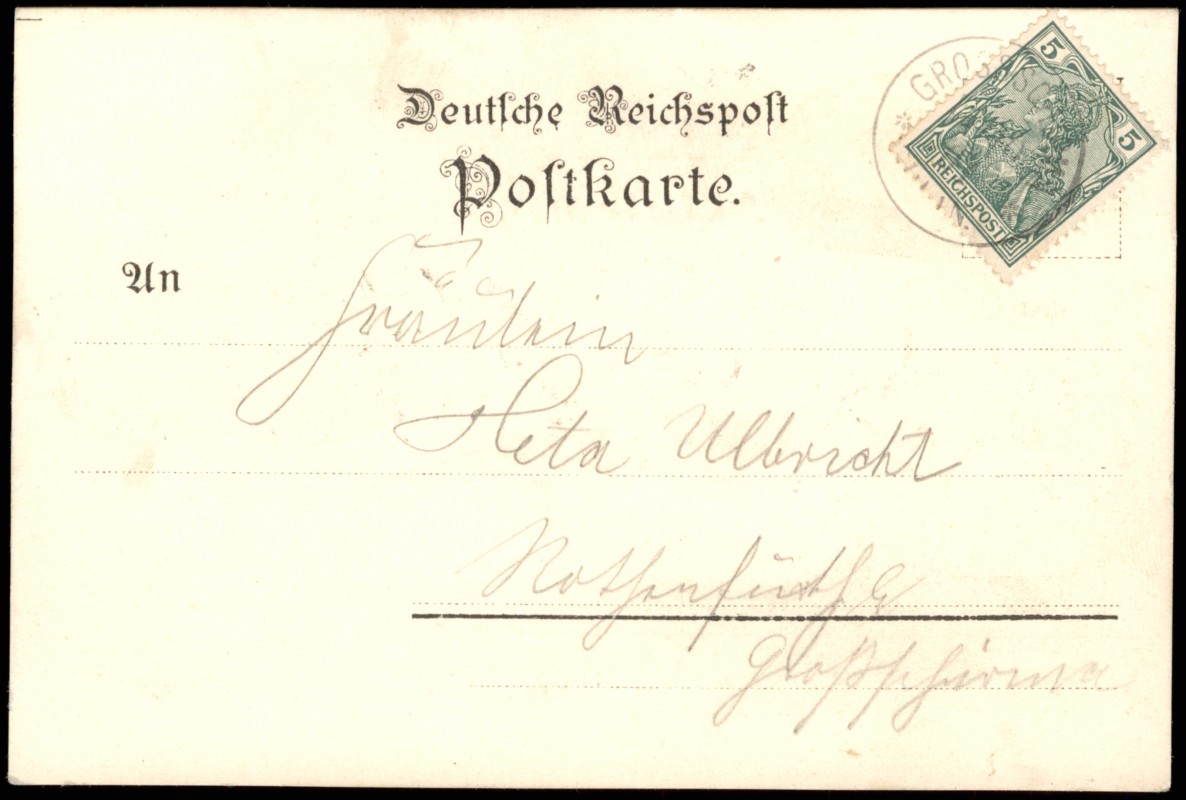 Deutsche Reichspost
Postkarte.
5
5
REICHSPOST
An
Fräulein
Heta Ulbricht
Großschirma